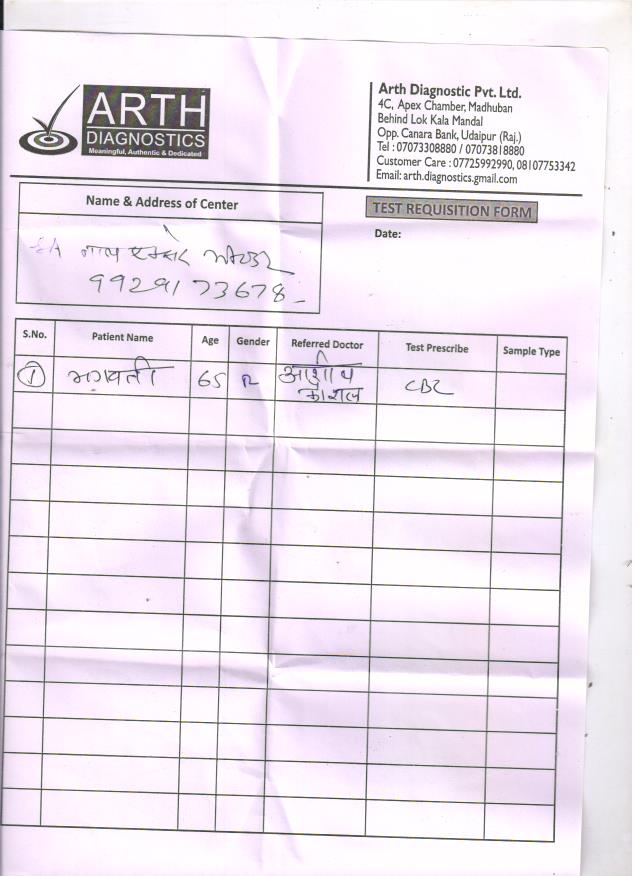 ARTH
DIAGNOSTICS
Meaningful, Authentic & Dedicated
Arth Diagnostic Pvt. Ltd.
4C, Apex Chamber, Madhuban
Behind Lok Kala Mandal
Opp. Canara Bank, Udaipur (Raj.)
Tel : 07073308880 / 07073818880
Customer Care : 07725992990, 08107753342
Email: arth.diagnostics.gmail.com
Name & Address of Center
TEST REQUISITION FORM
Date:
9929173678
S.No. Patient Name Age Gender Referred Doctor Test Prescribe Sample Type
1 भगवती 65 आशीष CBC